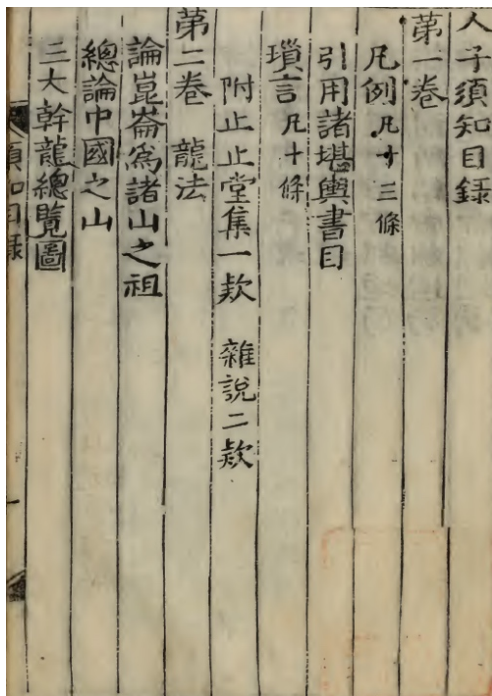 人子須知目録
第一卷
凡例凡十三條
引用諸堪輿書目
瑣言凡十條
附止止堂集一款 雜說二款
第二卷 龍法
論崑崙爲諸山之祖
總論中國之山
三大幹龍總覽圖
須知目録
一